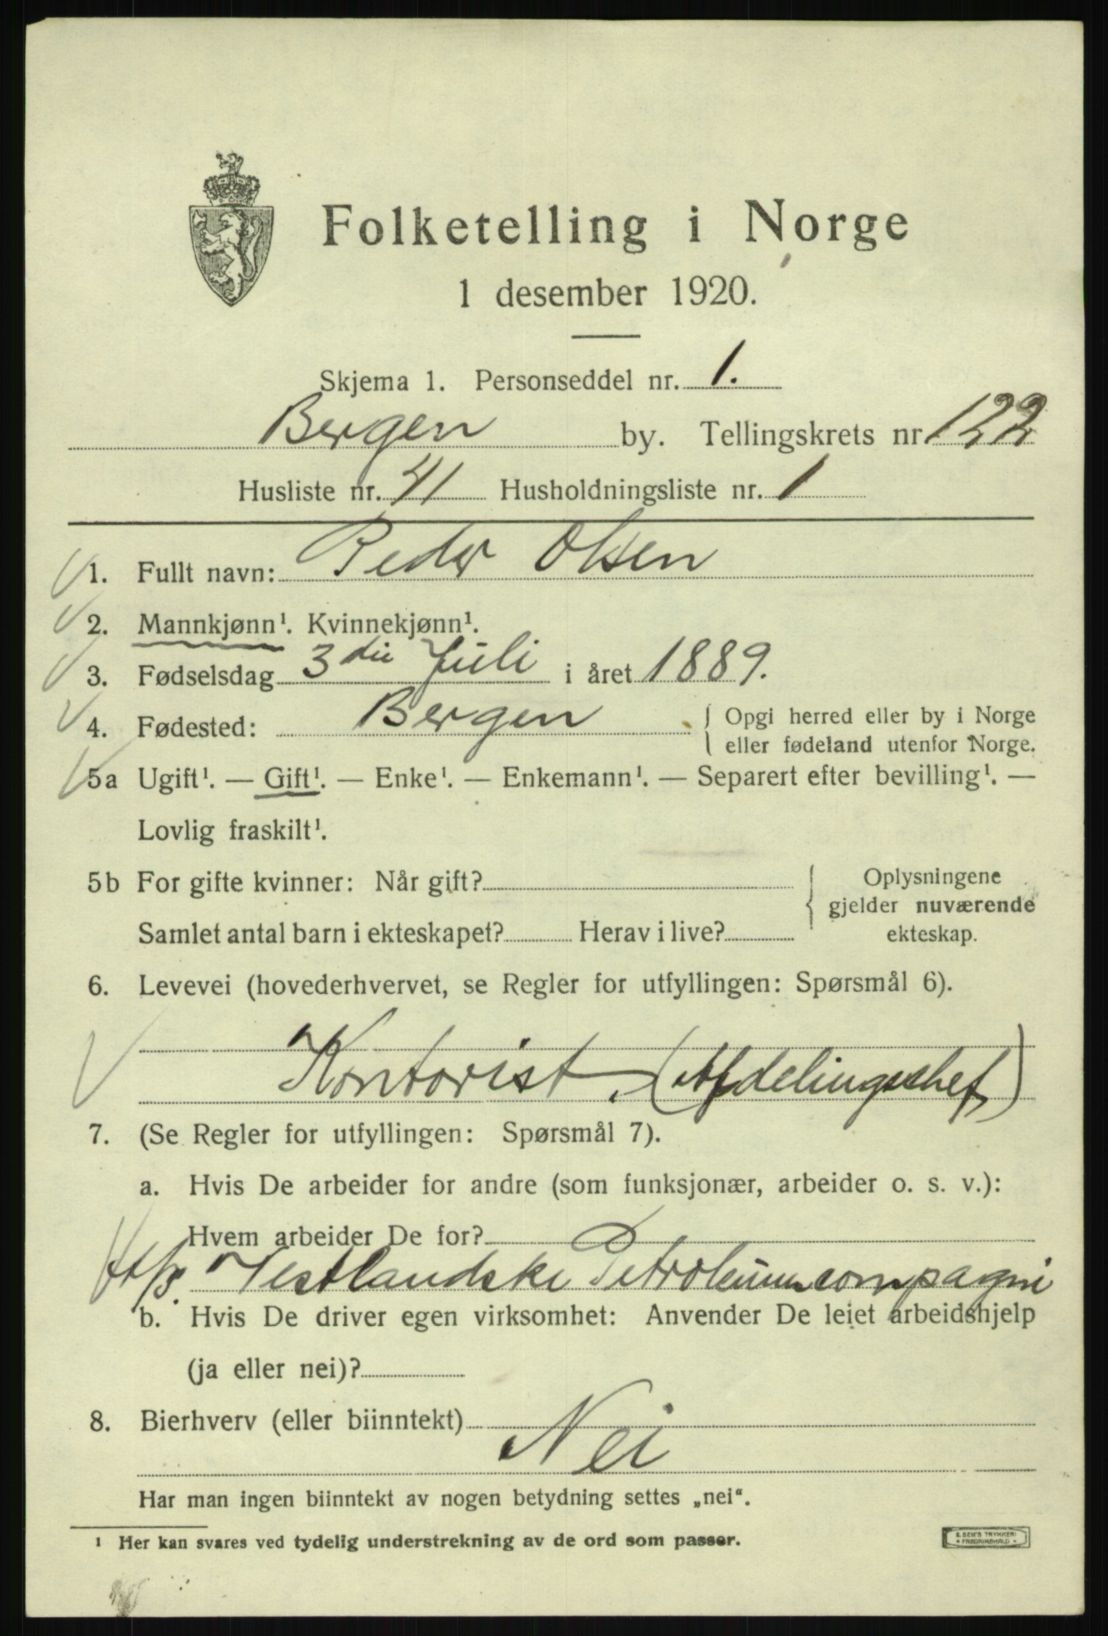 Folketelling i Norge
1 desember 1920.
Skjema 1. Personseddel nr. 1.
Bergen by. Tellingskrets nr 122
Husliste nr. 41 Husholdningsliste nr. 1
1. Fullt navn: Peder Olsen
2. Mannkjønn¹. Kvinnekjønn¹.
3. Fødselsdag 3die Juli i året 1889.
4. Fødested: Bergen { Opgi herred eller by i Norge
eller fødeland utenfor Norge.
5a Ugift¹. — Gift¹. — Enke¹. — Enkemann¹. — Separert efter bevilling¹. —
Lovlig fraskilt¹.
5b For gifte kvinner: Når gift? { Oplysningene
gjelder nuværende
Samlet antal barn i ekteskapet? Herav i live? ekteskap.
6. Levevei (hovederhvervet, se Regler for utfyllingen: Spørsmål 6).
Kontorist. (Afdelingschef)
7. (Se Regler for utfyllingen: Spørsmål 7).
a. Hvis De arbeider for andre (som funksjonær, arbeider o. s. v.):
Hvem arbeider De for?
Vestlandske Petroleumcompagni
b. Hvis De driver egen virksomhet: Anvender De leiet arbeidshjelp
(ja eller nei)?
8. Bierhverv (eller biinntekt)
Nei
Har man ingen biinntekt av nogen betydning settes „nei“.
¹ Her kan svares ved tydelig understrekning av de ord som passer.